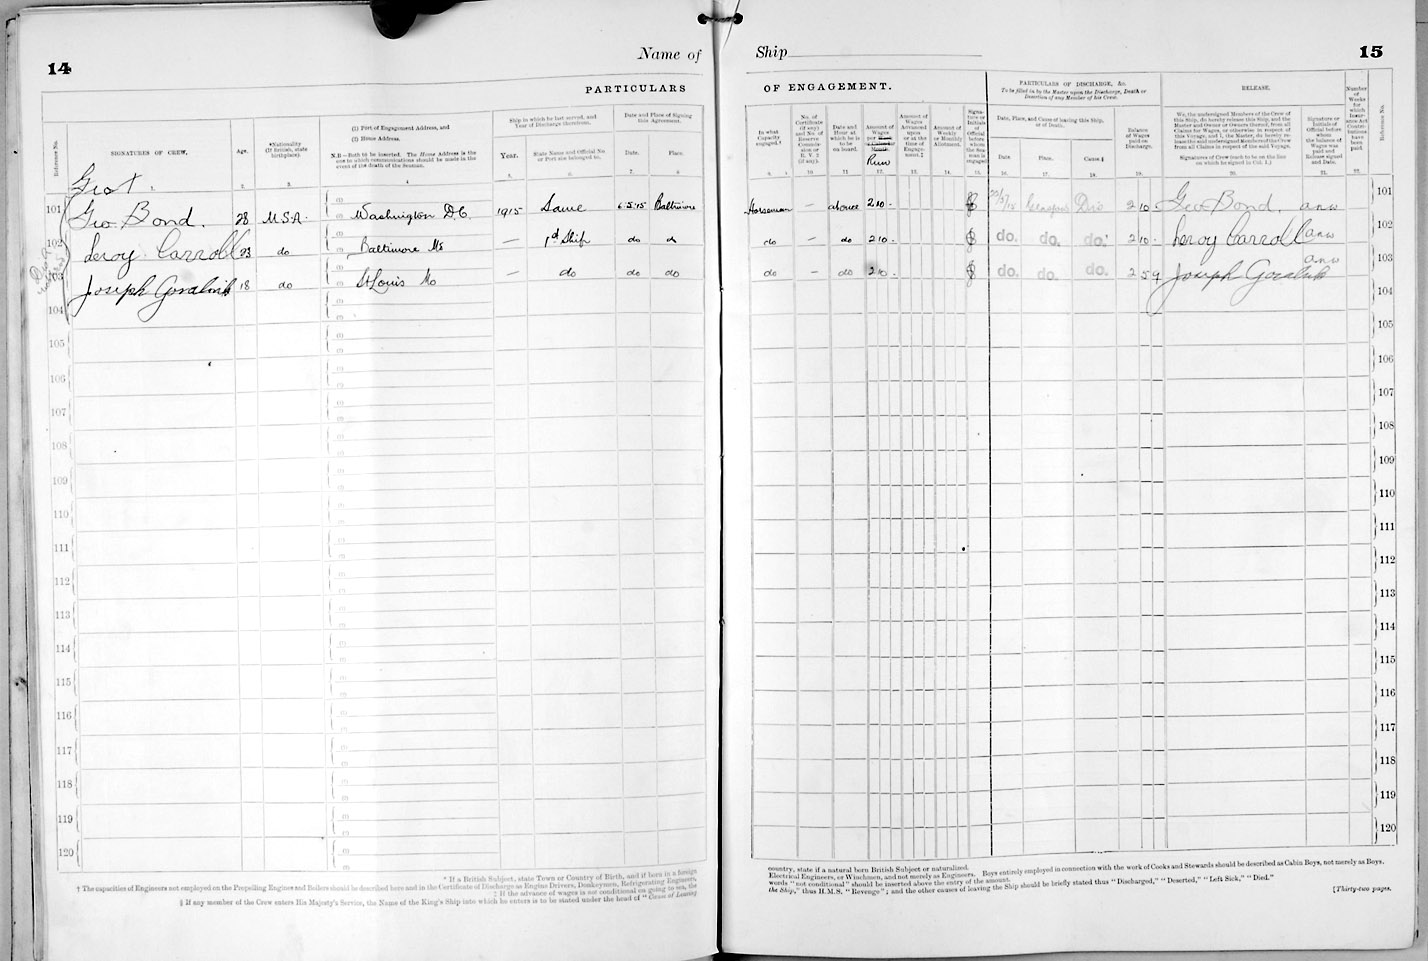 14
Name of
Ship
15
PARTICULARS
OF ENGAGEMENT.
PARTICULARS OF DISCHARGE, &c.
To be filled in by the Master upon the Discharge, Death or Desertion of any Member of his Crew.
RELEASE.
Reference No.
SIGNATURES OF CREW.
Age.
*Nationality (If British, state birthplace).
(1) Port of Engagement Address, and
(2) Home Address.
N.B.—Both to be inserted. The Home Address is the one in which communications should be made in the event of the death of the Seaman.
Ship in which he last served, and Year of Discharge therefrom.
Year.
State Name and Official No. or Port she belonged to.
Date and Place of Signing this Agreement.
Date.
Place.
In what Capacity engaged.
No. of Certificate (if any) and No. of Reserve Commission or R. V. 2 (if any).
Date and Hour at which he is to be on board.
Amount of Wages per
Run
Amount of Wages Advanced upon or at the time of Engagement.‡
Amount of Weekly or Monthly Allotment.
Signature or Initials of Official before whom the Seaman is engaged
Date, Place, and Cause of leaving this Ship, or of Death.
Date
Place.
Cause.§
Balance of Wages paid on Discharge.
We, the undersigned Members of the Crew of this Ship, do hereby release this Ship, and the Master and Owner or Owners thereof, from all Claims for Wages, or otherwise in respect of this Voyage, and I, the Master, do hereby release the said undersigned Members of the Crew from all Claims in respect of the said Voyage.
Signatures of Crew (each to be on the line on which he signed in Col. 1.)
Signature or Initials of Official before whom the balance of Wages was paid and Release signed and Date.
Number of Weeks for which Insurance Act Contributions have been paid.
Reference No.
101 Geo. Bond. 28 U.S.A. Washington D.C. 1915 Same 6.5.15 Baltimore Horseman — at once 210 - Geo Bond. anw 101
102 Leroy Carroll 23 do Baltimore Md — 1st Ship do do do — do 210 - do. do. do. 210 - Leroy Carroll anw 102
103 Joseph 18 do St Louis Mo — do do do do — do 210 - do. do. do. 2 59 Joseph anw 103
104 104
105 105
106 106
107 107
108 108
109 109
110 110
111 111
112 112
113 113
114 114
115 115
116 116
117 117
118 118
119 119
120 120
* If a British Subject, state Town or Country of Birth, and if born in a foreign country, state if a natural born British Subject or naturalized.
† The capacities of Engineers not employed on the Propelling Engines and Boilers should be described here and in the Certificate of Discharge as Engine Drivers, Donkeymen, Refrigerating Engineers, Electrical Engineers, or Winchmen, and not merely as Engineers. Boys entirely employed in connection with the work of Cooks and Stewards should be described as Cabin Boys, not merely as Boys.
‡ If the advance of wages is not conditional on going to sea, the words "not conditional" should be inserted above the entry of the amount.
§ If any member of the Crew enters His Majesty's Service, the Name of the King's Ship into which he enters is to be stated under the head of "Cause of Leaving the Ship," thus H.M.S. "Revenge"; and the other causes of leaving the Ship should be briefly stated thus "Discharged," "Deserted," "Left Sick," "Died."
[Thirty-two pages.